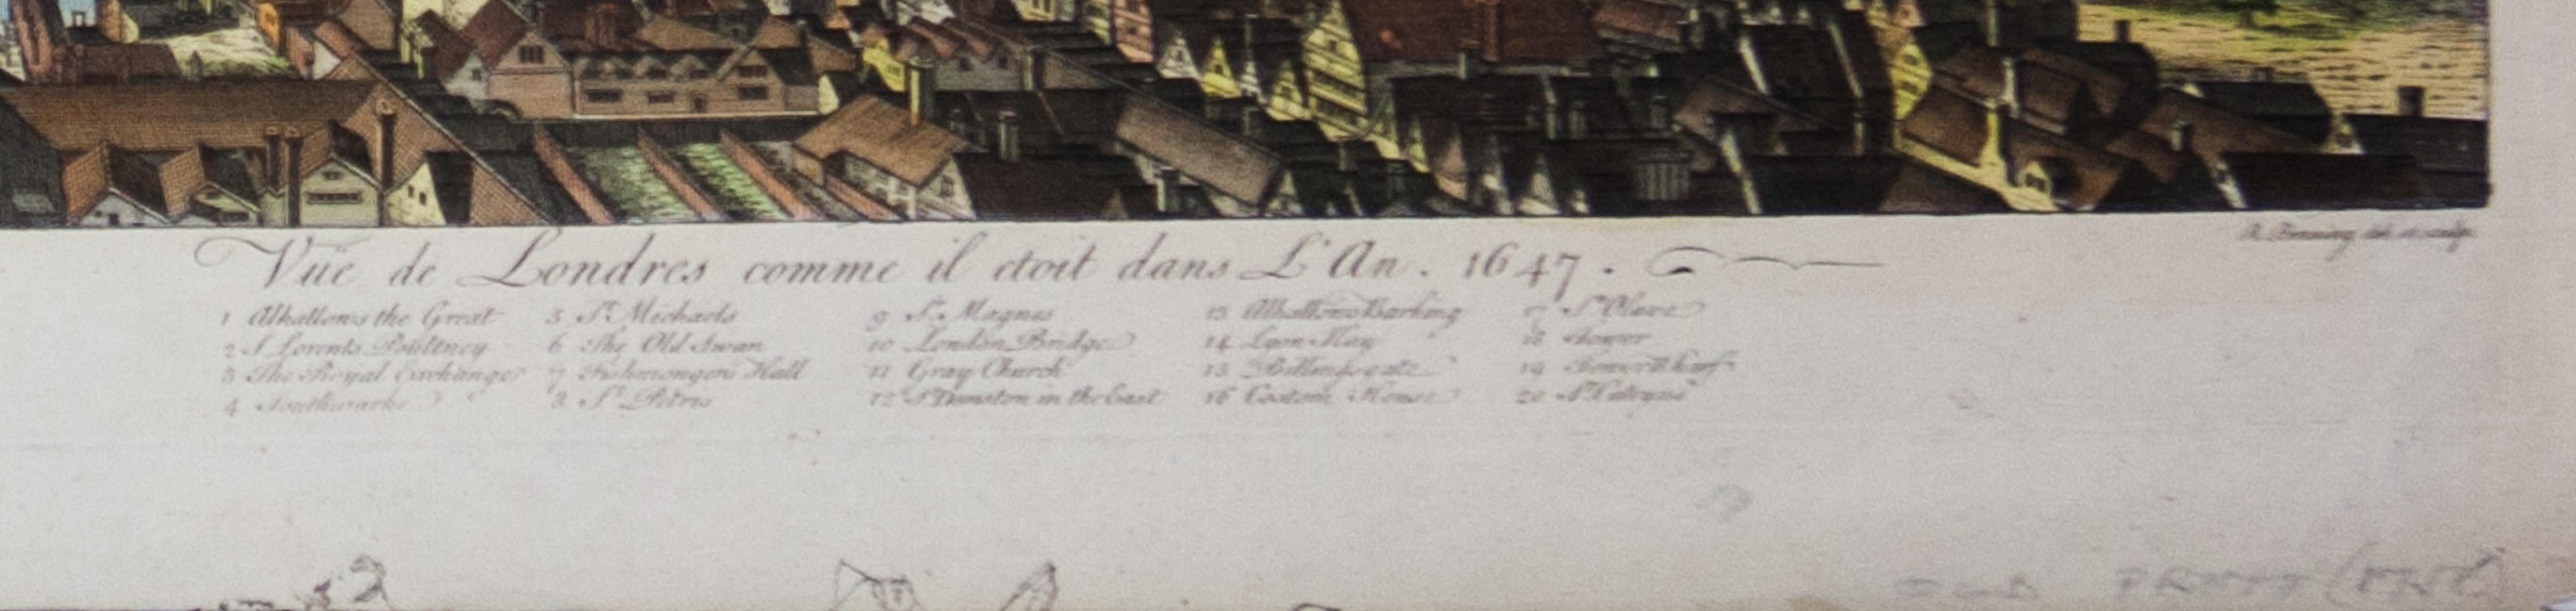 Vuë de Londres comme il etoit dans L'An. 1647.
1 Alhallows the Great
2 S. Lorents Poultney
3 The Royal Exchange
4 Southwarke
5 St. Michaels
6 The Old Swan
7 Fishmongers Hall
8 St. Petris
9 St. Magnes
10 London Bridge
11 Gray Church
12 St. Dunston in the East
13 Alhallows Barking
14 Lyon Kay
15 Billingsgate
16 Costom House
17 St. Olave
18 Tower
19 Tower Wharf
20
R. Benning del. et sculp.